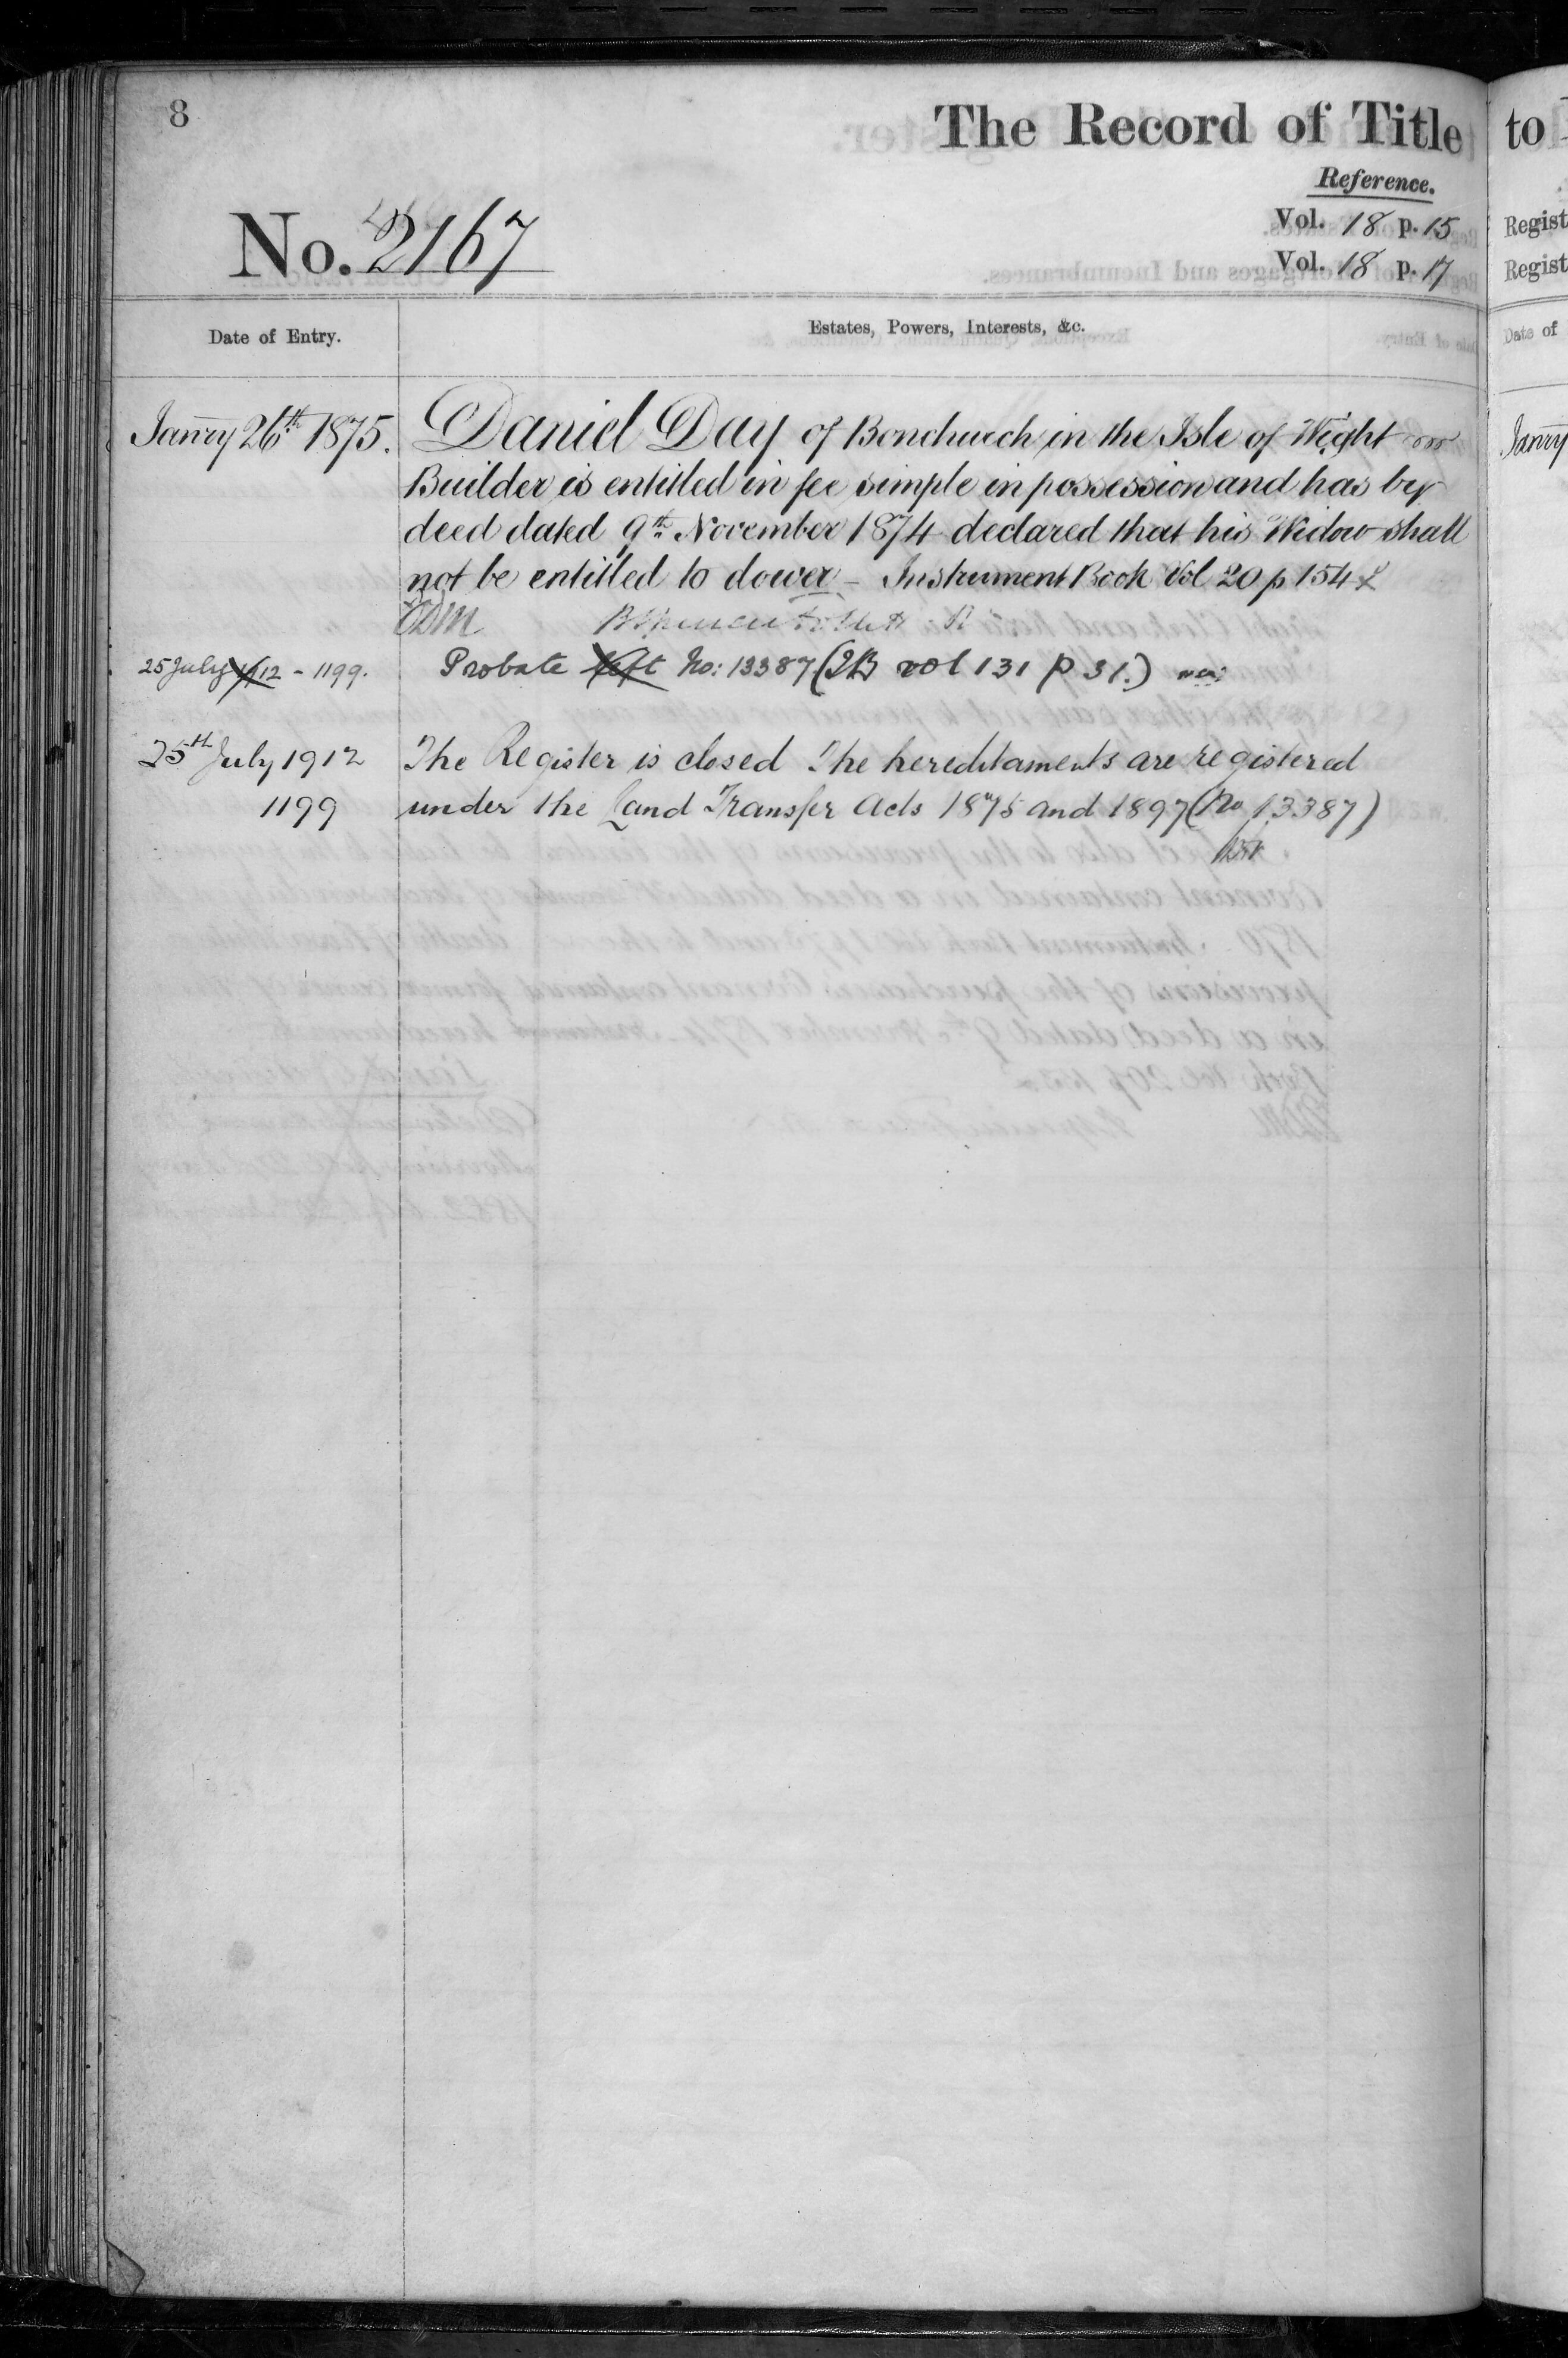 8
The Record of Title
to
Reference.
Vol. 18 p. 15
Regist
No. 2167
Vol. 18 p. 17
Regist
Date of Entry.
Estates, Powers, Interests, &c.
Date of
Janry 26th 1875.
Daniel Day of Bonchurch in the Isle of Wight
Janry
Builder is entitled in fee simple in possession and has by
deed dated 9th November 1874 declared that his Widow shall
not be entitled to dower - Instrument Book Vol 20 p 154
25 July 12 - 1199.
Probate left No: 13387 (IB vol 131 p 31.)
25th July 1912
The Register is closed The hereditaments are registered
1199
under the Land Transfer Acts 1875 and 1897 (No 13387)